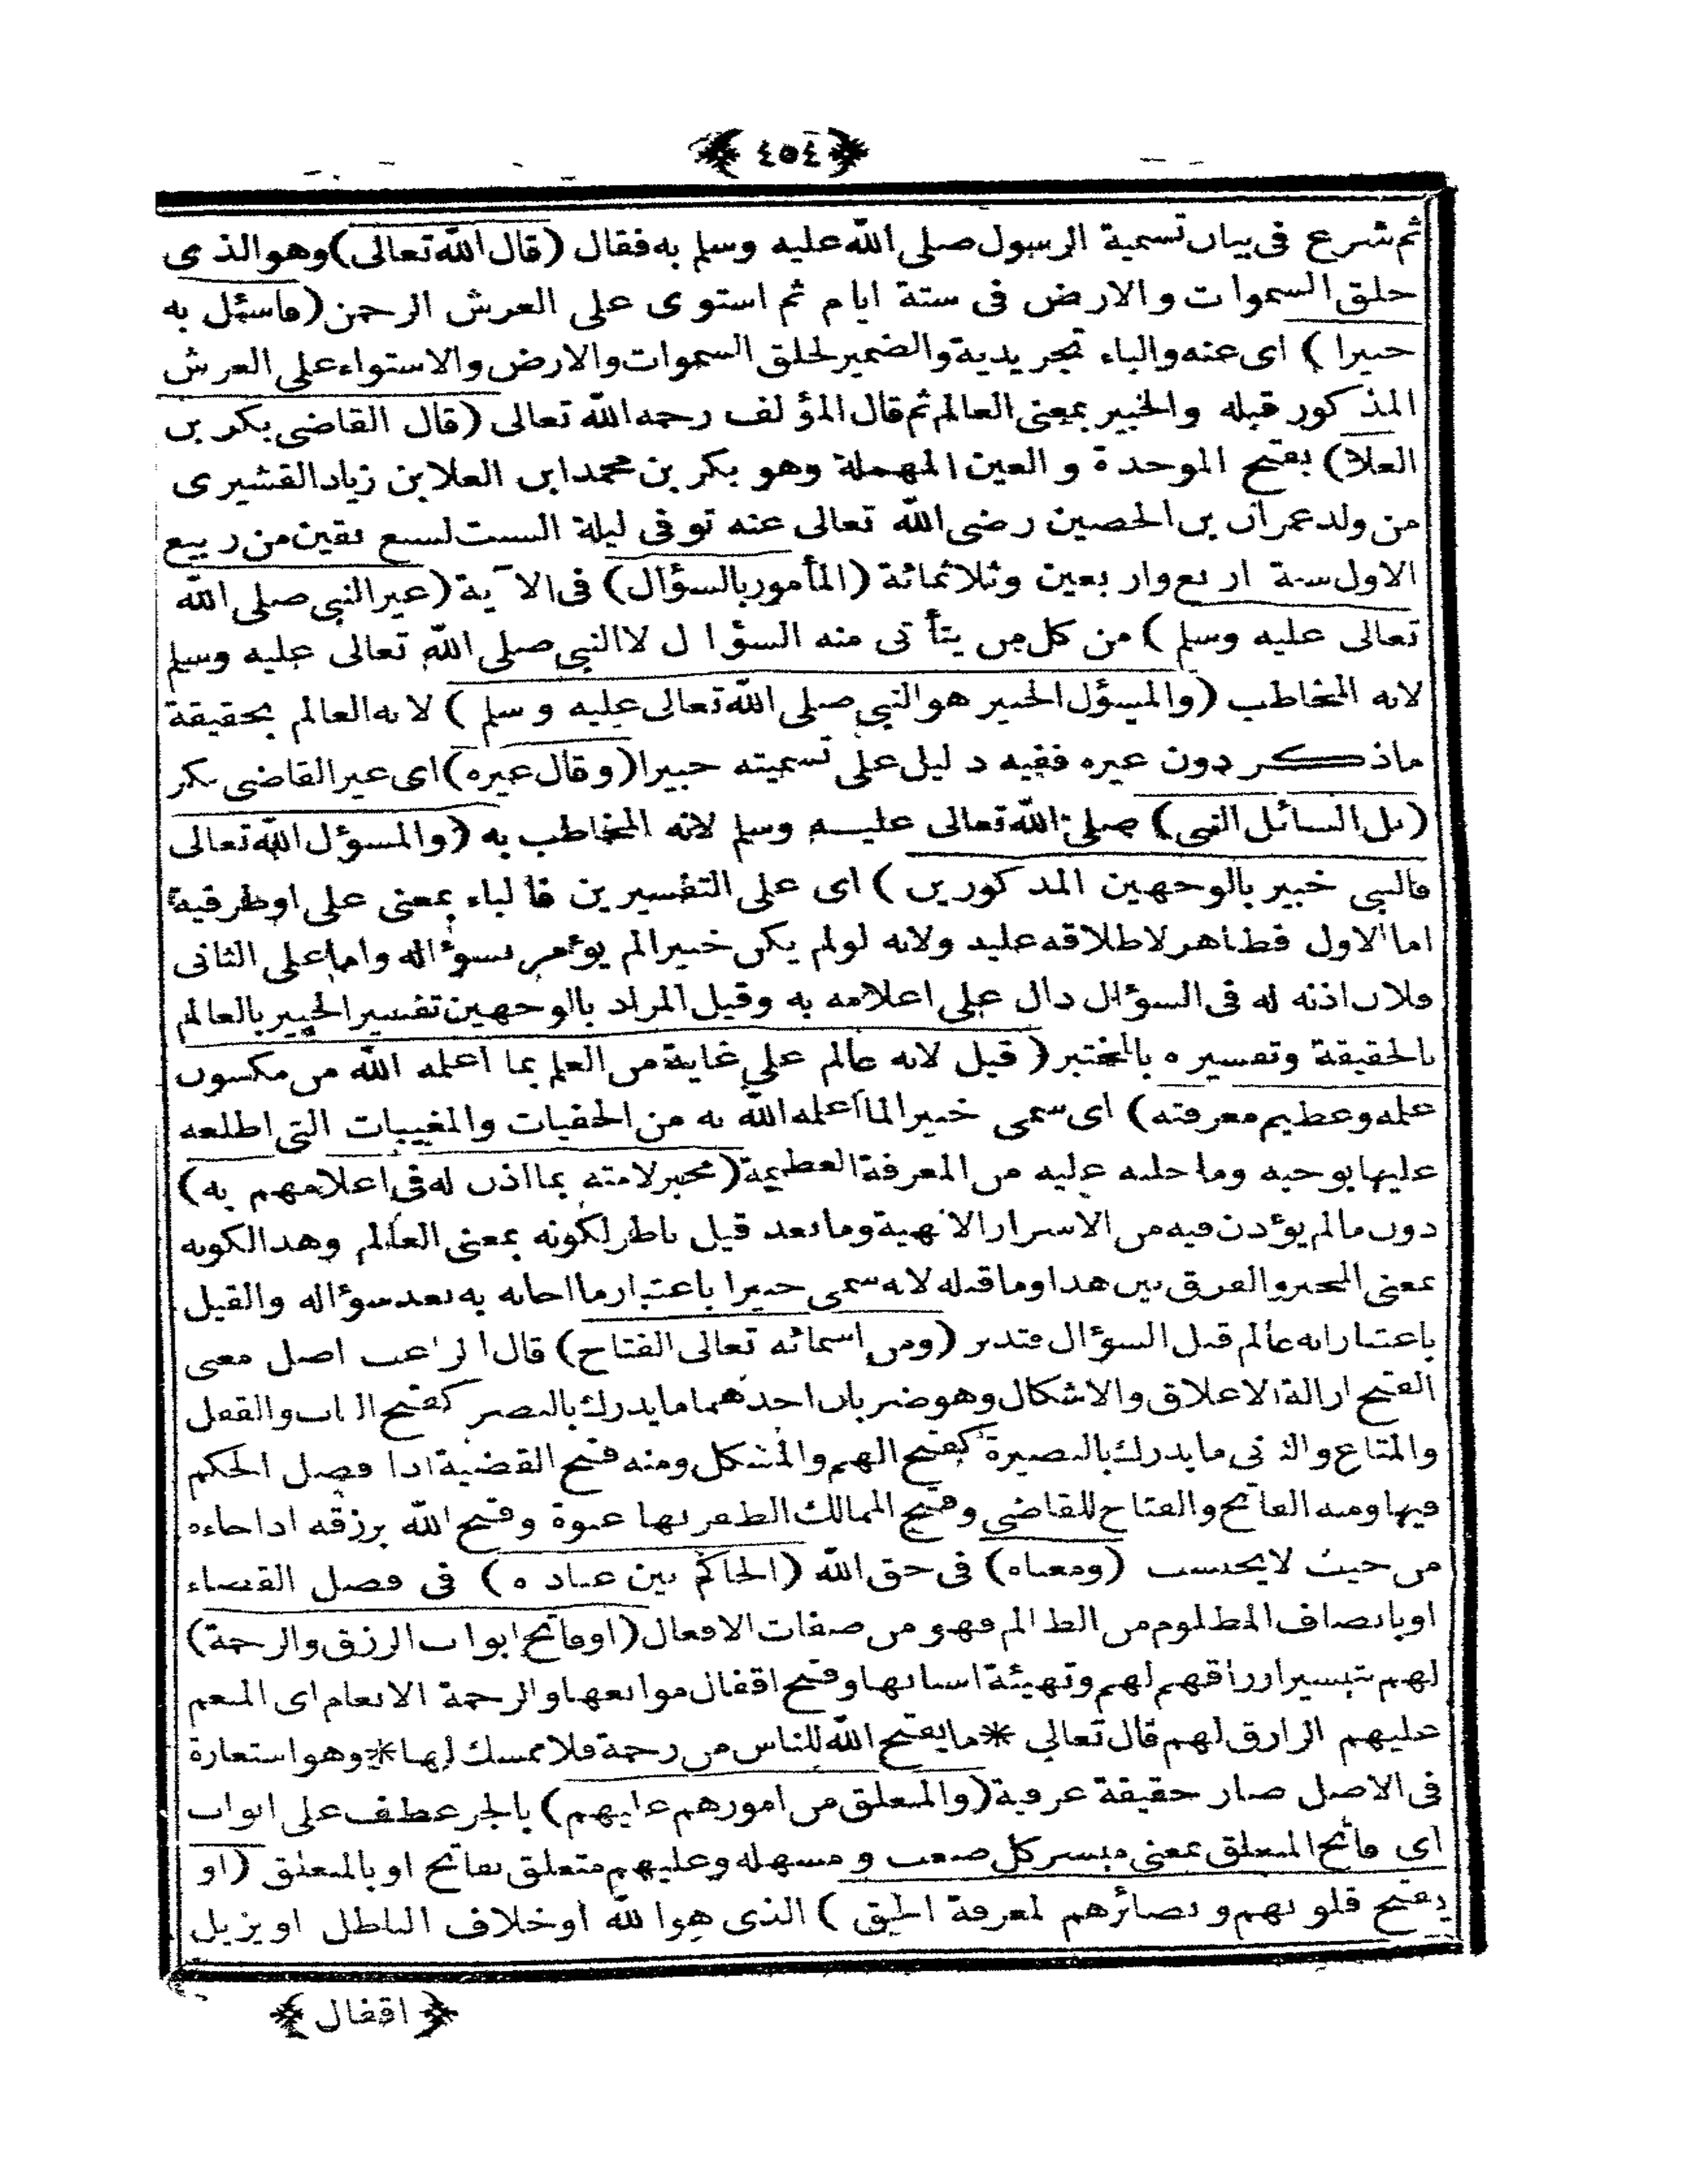 ﴿ ٤٥٤ ﴾
ثم شرع فى بيان تسمية الرسول صلى الله عليه وسلم به فقال (قال الله تعالى) وهو الذى
خلق السموات والارض فى ستة ايام ثم استوى على العرش الرحمن (فاسئل به
خبيرا) اى عنه والباء تجريدية والضمير لخلق السموات والارض والاستواء على العرش
المذكور قبله والخبير بمعنى العالم ثم قال المؤلف رحمه الله تعالى (قال القاضى بكر بن
العلا) بفتح الموحدة والعين المهملة وهو بكر بن محمد ابن العلا بن زياد القشيرى
من ولد عمران بن الحصين رضى الله تعالى عنه توفى ليلة السبت لسبع بقين من ربيع
الاول سنة اربع واربعين وثلاثمائة (المأمور بالسؤال) فى الآية (غير النبى صلى الله
تعالى عليه وسلم) من كل من يتأتى منه السؤال لا النبى صلى الله تعالى عليه وسلم
لانه المخاطب (والمسؤل الخبير هو النبى صلى الله تعالى عليه وسلم) لانه العالم بحقيقة
ماذكر دون غيره ففيه دليل على تسميته خبيرا (وقال غيره) اى غير القاضى بكر
(بل السائل النبى) صلى الله تعالى عليه وسلم لانه المخاطب به (والمسؤل الله تعالى
فالنبى خبير بالوجهين المذكورين) اى على التفسيرين فالباء بمعنى على اوظرفية
اما الاول فظاهر لاطلاقه عليه ولانه لولم يكن خبيرا لم يؤمر بسؤاله واما على الثانى
فلان اذنه له فى السؤال دال على اعلامه به وقيل المراد بالوجهين تفسير الخبير بالعالم
بالحقيقة وتفسيره بالمختبر (قيل لانه عالم على غاية من العلم بما اعلمه الله من مكنون
علمه وعظيم معرفته) اى سمى خبيرا لما اعلمه الله به من الخفيات والمغيبات التى اطلعه
عليها بوحيه وما جلبه عليه من المعرفة العظيمة (مخبر لامته بما اذن له فى اعلامهم به)
دون مالم يؤذن فيه من الاسرار الالهية ومابعد قيل ناظر لكونه بمعنى العالم وهذا لكونه
بمعنى المخبر والفرق بين هذا وماقبله لانه سمى خبيرا باعتبار ما اجابه به بعد سؤاله والقيل
باعتبار انه عالم قبل السؤال فتدبر (ومن اسمائه تعالى الفتاح) قال الراغب اصل معنى
الفتح ازالة الاغلاق والاشكال وهو ضربان احدهما مايدرك بالبصر كفتح الباب والقفل
والمتاع والثانى مايدرك بالبصيرة كفتح الهم والمشكل ومنه فتح القضية اذا فصل الحكم
فيها ومنه الفاتح والفتاح للقاضى وفتح الممالك الظفر بها عنوة وفتح الله برزقه اذا جاءه
من حيث لايحتسب (ومعناه) فى حق الله (الحاكم بين عباده) فى فصل القضاء
او بانصاف المظلوم من الظالم فهو من صفات الافعال (اوفاتح ابواب الرزق والرحمة)
لهم بتيسير ارزاقهم لهم وتهيئة اسبابها وفتح اقفال موانعها والرحمة الانعام اى المنعم
عليهم الرازق لهم قال تعالى * مايفتح الله للناس من رحمة فلا ممسك لها * وهو استعارة
فى الاصل صار حقيقة عرفية (والمنغلق من امورهم عليهم) بالجر عطف على ابواب
اى فاتح المنغلق بمعنى ميسر كل صعب ومسهله وعليهم متعلق بفاتح او بالمنغلق (او
يفتح قلوبهم وبصائرهم لمعرفة الحق) الذى هو الله اوخلاف الباطل او يزيل
﴿ اقفال ﴾